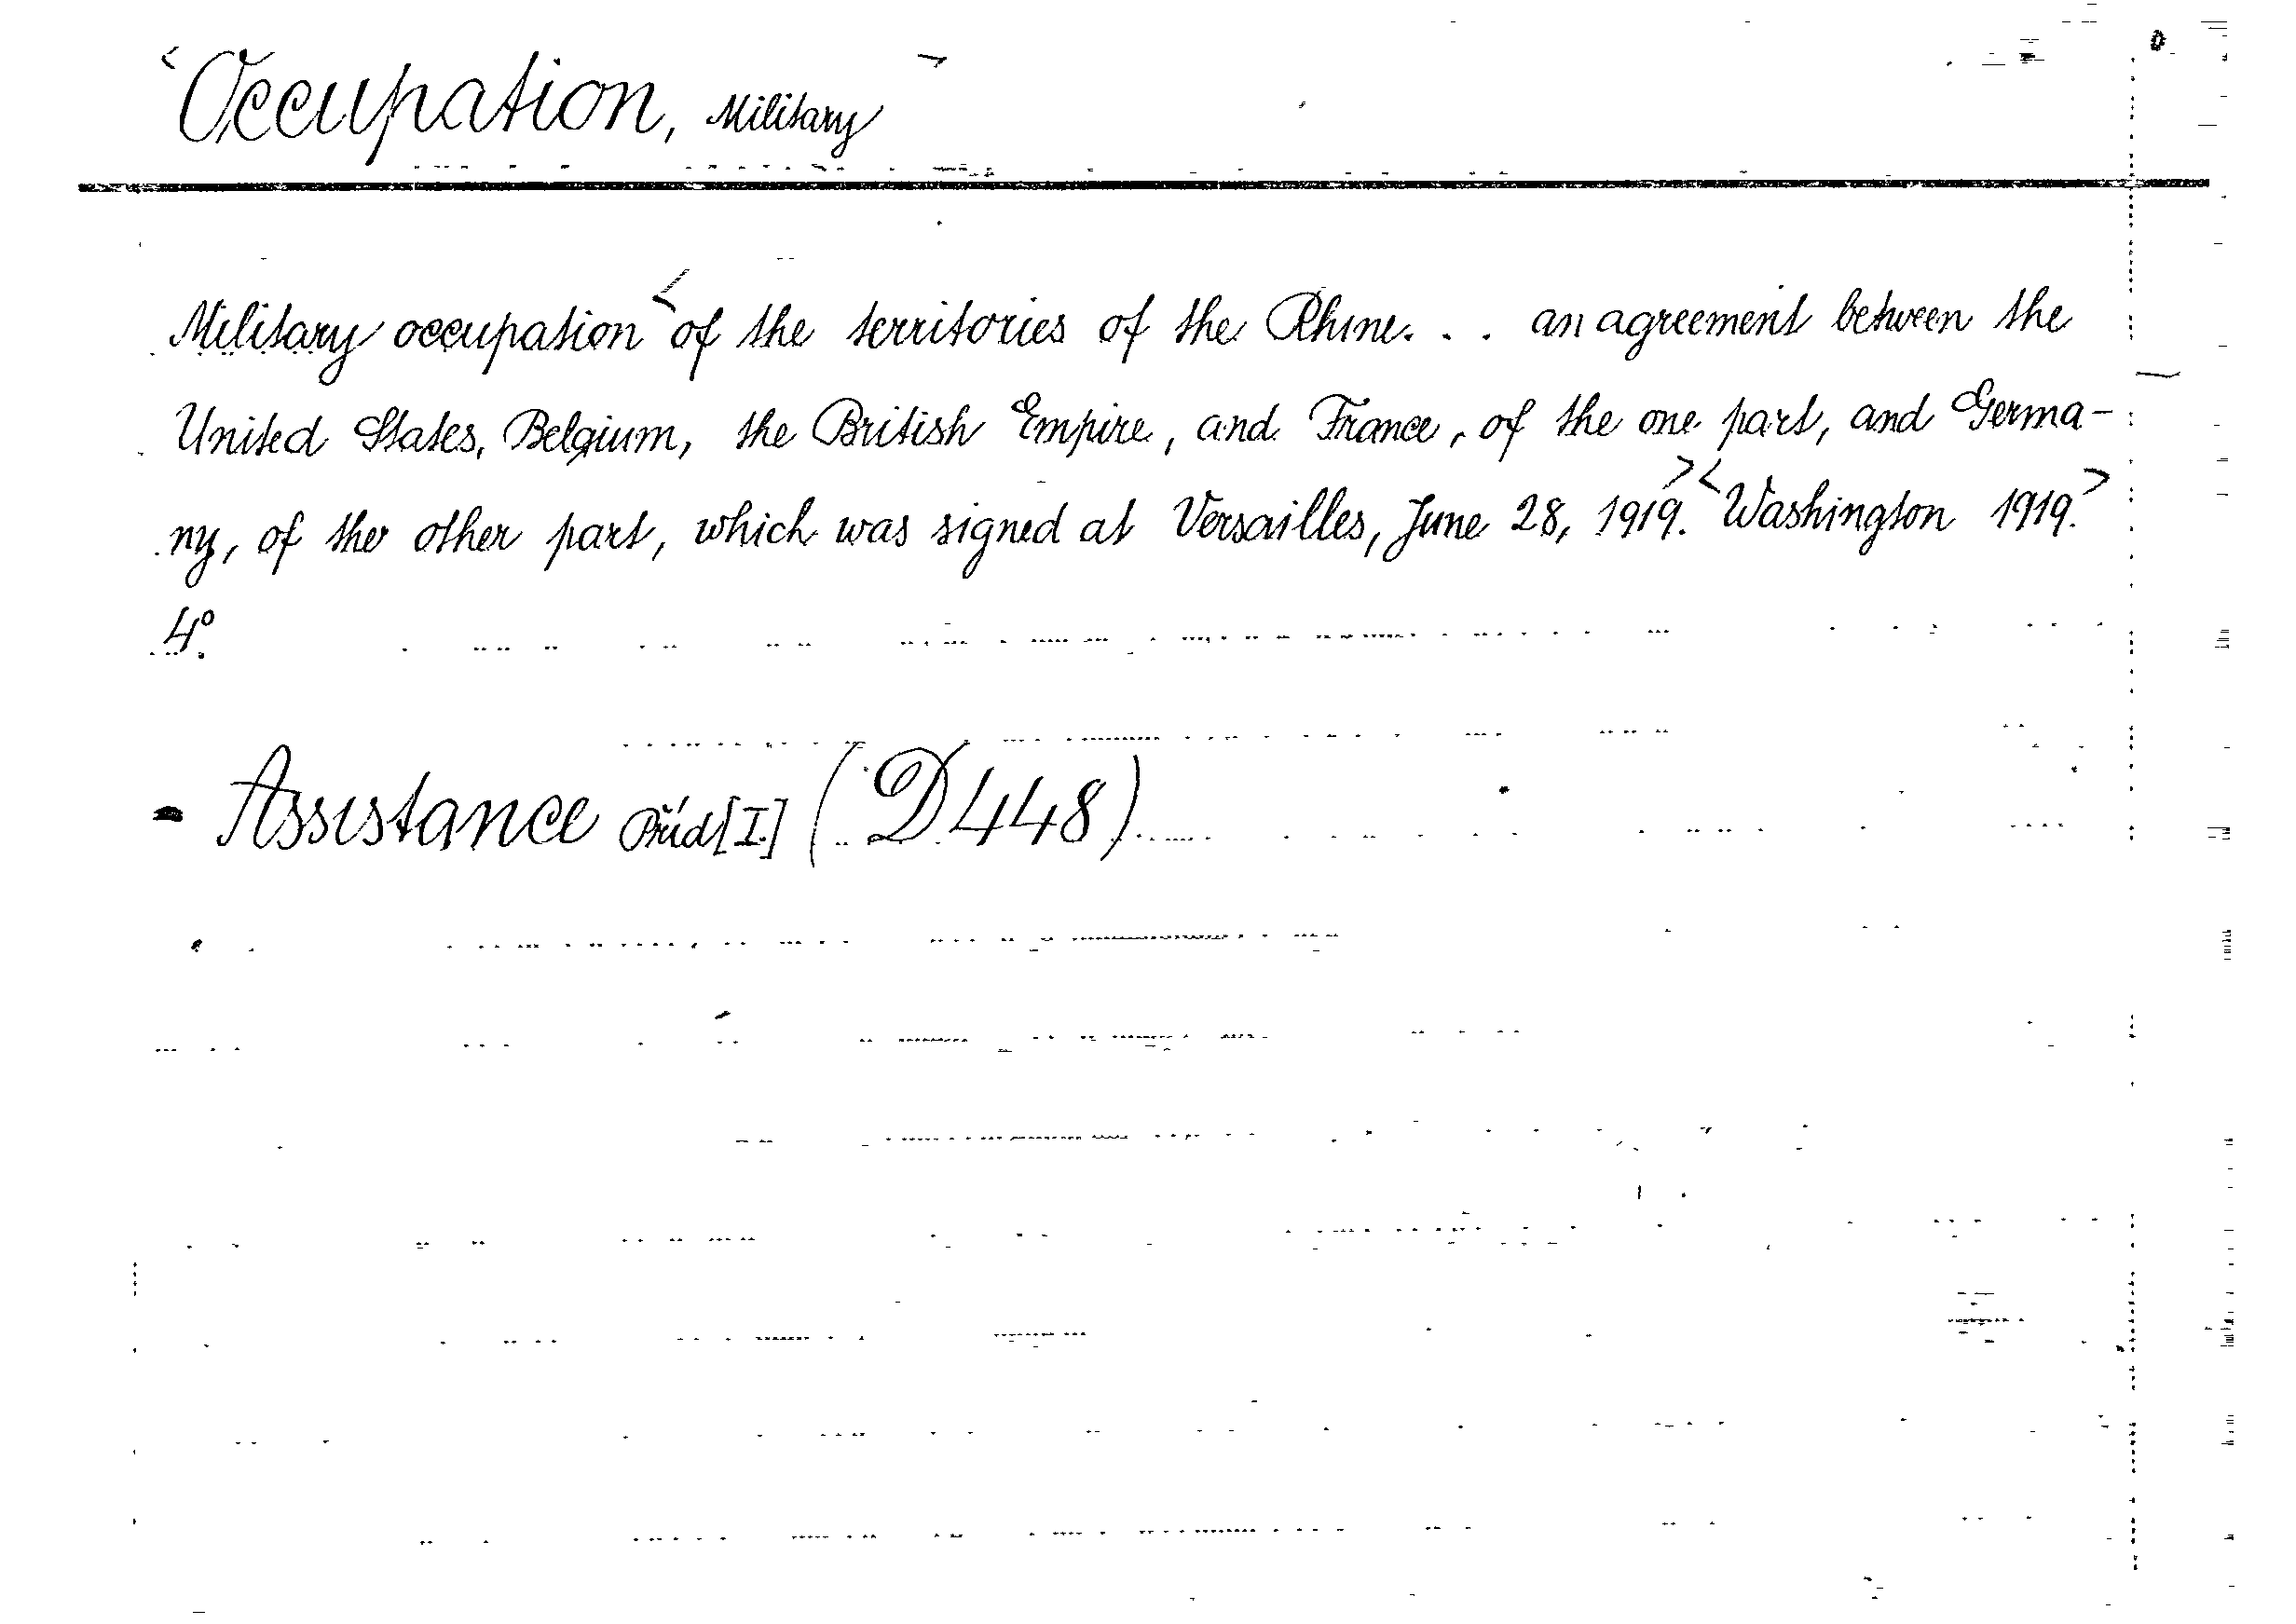 <Occupation, Military>
Military occupation <of the territories of the Rhine. . . an agreement between the
United States, Belgium, the British Empire, and France, of the one part, and Germa-
ny, of the other part, which was signed at Versailles, June 28, 1919.> <Washington 1919.>
4°.
- Assistance Příd[I.] (D448)